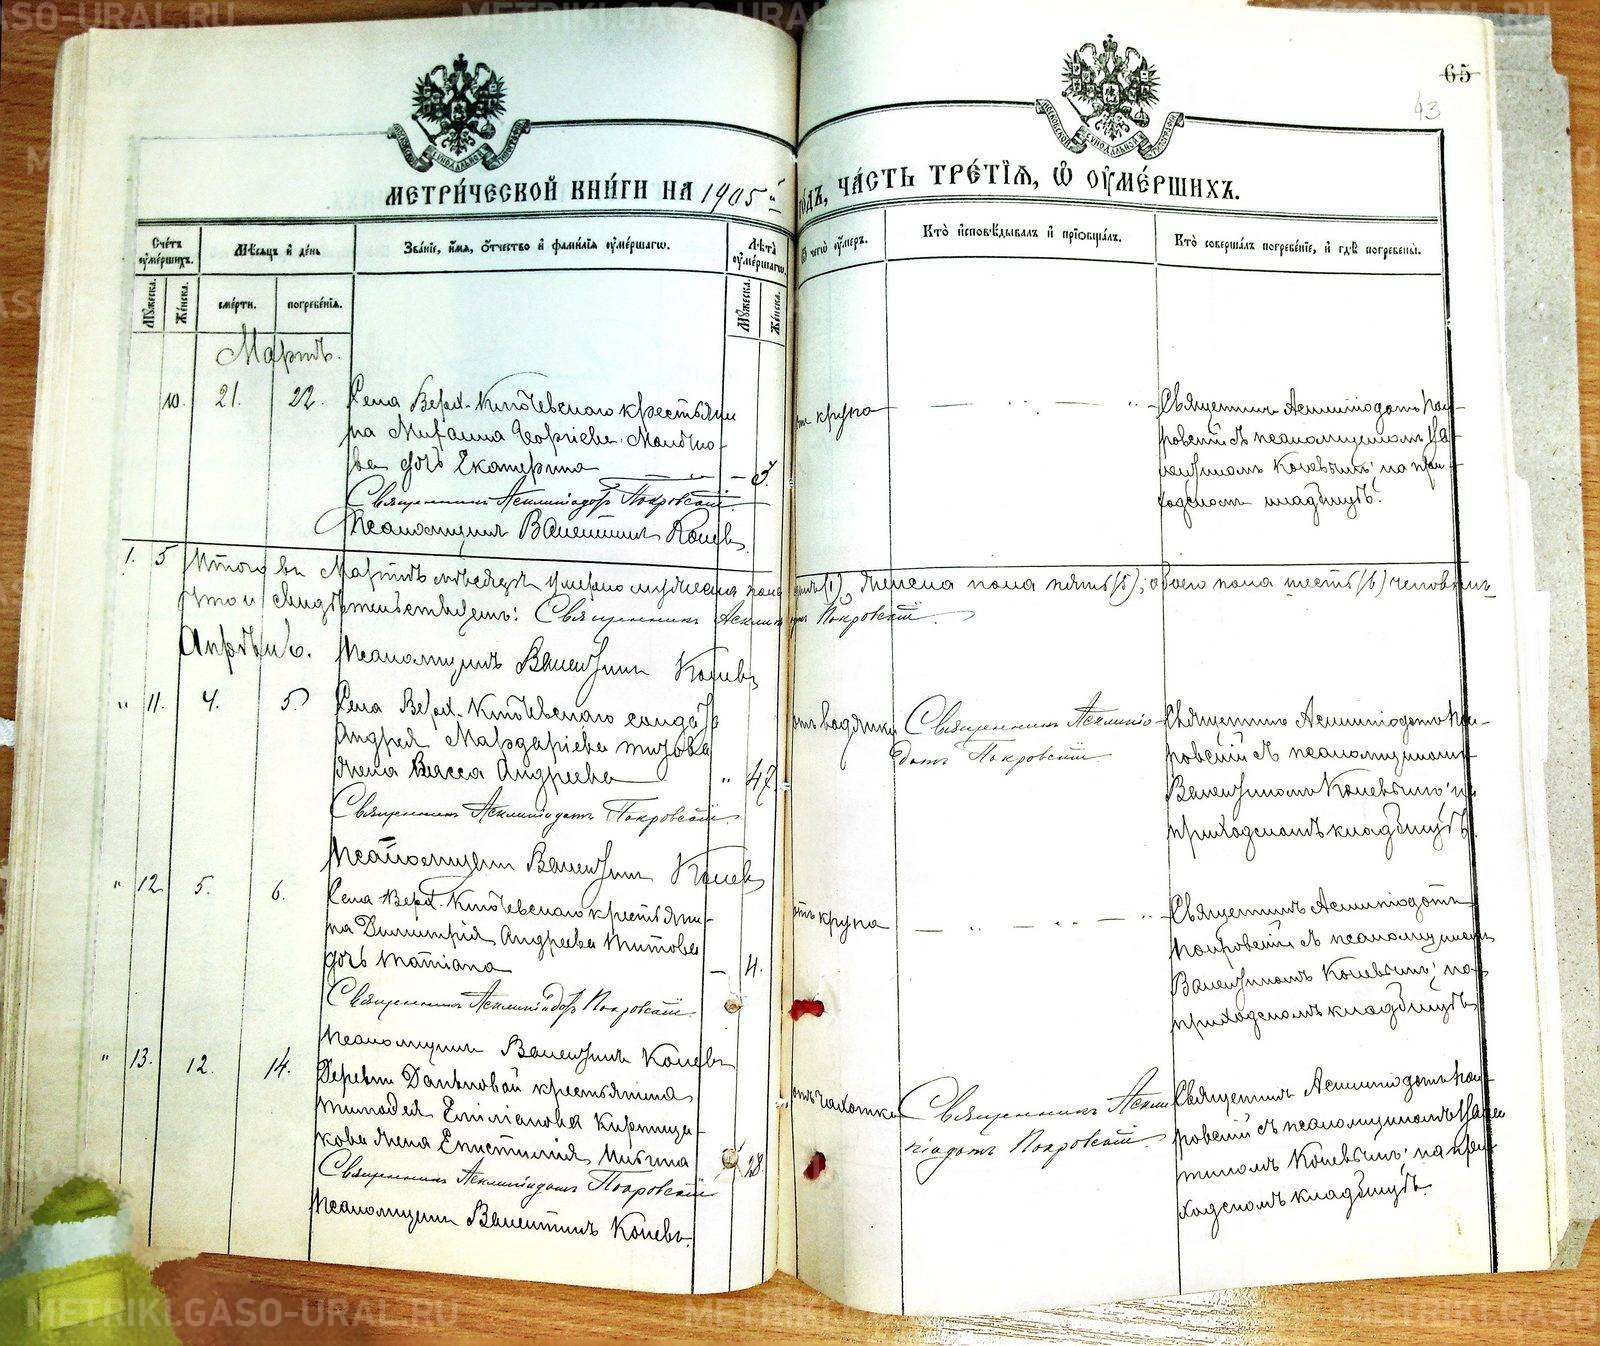 METRIKI.GASO-URAL.RU
65
43
МЕТРИ́ЧЕСКОЙ КНИ́ГИ НА 1905й
го́дъ, ча́сть тре́тїѧ, ѽ оу҆ме́ршихъ.
Сче́тъ оу҆ме́ршихъ.
Мѣсяцъ и день
Зва́нїе, и҆́мѧ, ѻ҆́тчество и҆ фами́лїѧ оу҆ме́ршагѡ.
Лѣта̀ оу҆ме́ршагѡ.
Ѿ чегѡ̀ оу҆́меръ.
Кто̀ и҆сповѣ́дывалъ и҆ прїѡбща́лъ.
Кто̀ соверша́лъ погребе́нїе, и҆ гдѣ̀ погребены̀.
Мꙋ́жеска.
Же́нска.
сме́рти.
погребе́нїѧ.
Мꙋ́жеска.
Же́нска.
Мартъ.
10. 21. 22.
Села Верх-Ключевского крестьяни
на Михаила Георгиева
ва дочь Екатерина 3.
Священникъ Асклипіодотъ Покровскій
Псаломщикъ Валентинъ Коневъ.
отъ крупа
Священникъ Асклипіодотъ Пок-
ровскій съ псаломщикомъ Ва-
лентиномъ Коневымъ; на при-
ходскомъ кладбищѣ.
1. 5 Итого въ Мартѣ мѣсяцѣ умерло мужеска пола одинъ (1), женска пола пять (5); обоего пола шесть (6) человѣкъ
Что и свидѣтельствуемъ: Священникъ Асклипіодотъ Покровскій.
Апрѣль. Псаломщикъ Валентинъ Коневъ
" 11. 4. 5.
Села Верх-Ключевского солдата
Андрея Мардаріева Титова
жена Васса Андреева " 47
Священникъ Асклипіодотъ Покровскій.
Псаломщикъ Валентинъ Коневъ
отъ водянки
Священникъ Асклипіо-
дотъ Покровскій
Священникъ Асклипіодотъ Пок-
ровскій съ псаломщикомъ
Валентиномъ Коневымъ; на
приходскомъ кладбищѣ.
" 12 5. 6.
Села Верх-Ключевского крестьяни-
на Димитрія Андреева Титова
дочь Татіана 4.
Священникъ Асклипіодотъ Покровскій.
Псаломщикъ Валентинъ Коневъ
отъ крупа
Священникъ Асклипіодотъ
Покровскій съ псаломщикомъ
Валентиномъ Коневымъ; на
приходскомъ кладбищѣ
" 13. 12. 14.
Деревни крестьянина
Тимофея Емиліанова Кирпищи-
кова жена Епистимія 28.
Священникъ Асклипіодотъ Покровскій
Псаломщикъ Валентинъ Коневъ.
отъ чахотки
Священникъ Аскли
піодотъ Покровскій
Священникъ Асклипіодотъ Пок-
ровскій съ псаломщикомъ Вален
тиномъ Коневымъ; на при-
ходскомъ кладбищѣ.
METRIKI.GASO-URAL.RU
METRIKI.GASO-URAL.RU